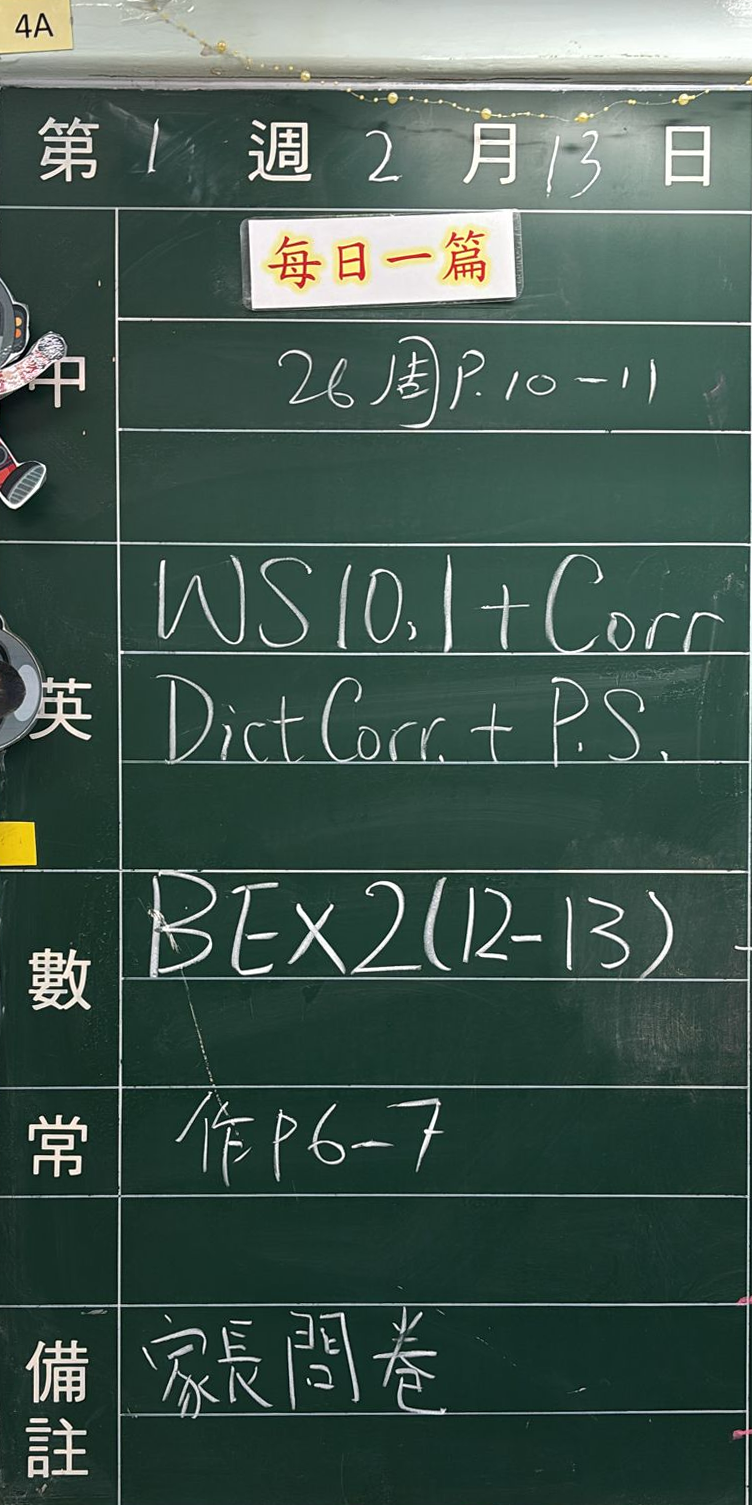 4A
第 1 週 2 月 13 日
每日一篇
中
26周P.10-11
WS10.1+Corr
英
Dict Corr. + P.S.
數
BEX2(12-13)
常
作P6-7
備註
家長問卷